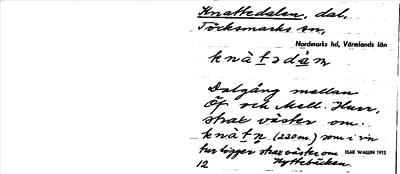 Knattedalen, dal,
Töcksmarks sn,
Nordmarks hd, Värmlands län
knàtədá̀n
Dalgång mellan
Öf och Mell. Hurr,
strax väster om
knàtn̥ (220 m.) som i sin
tur ligger strax väster om
ISAK WALLIN 1912
12 Hyttebäcken.